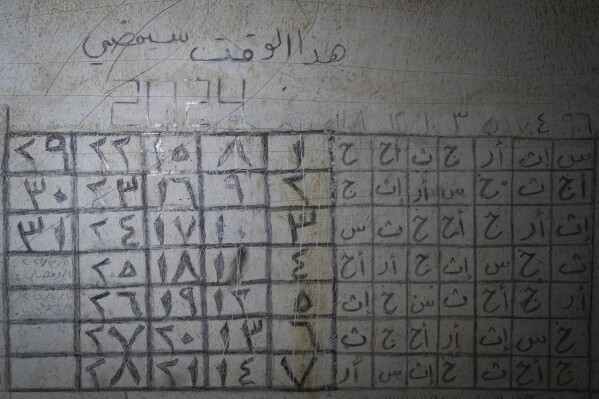 هذا الوقت سيمضي
2024
س إث أر ج ث أح خ ١ ٨ ١٥ ٢٢ ٢٩
أح ث خ س أر إث ج ٢ ٩ ١٦ ٢٣ ٣٠
إث أر ج أح خ ث س ٣ ١٠ ١٧ ٢٤ ٣١
ث خ س إث ج أر أح ٤ ١١ ١٨ ٢٥
أر ج أح ث س خ إث ٥ ١٢ ١٩ ٢٦
خ س إث أر أح ج ث ٦ ١٣ ٢٠ ٢٧
ج أح ث خ إث س أر ٧ ١٤ ٢١ ٢٨